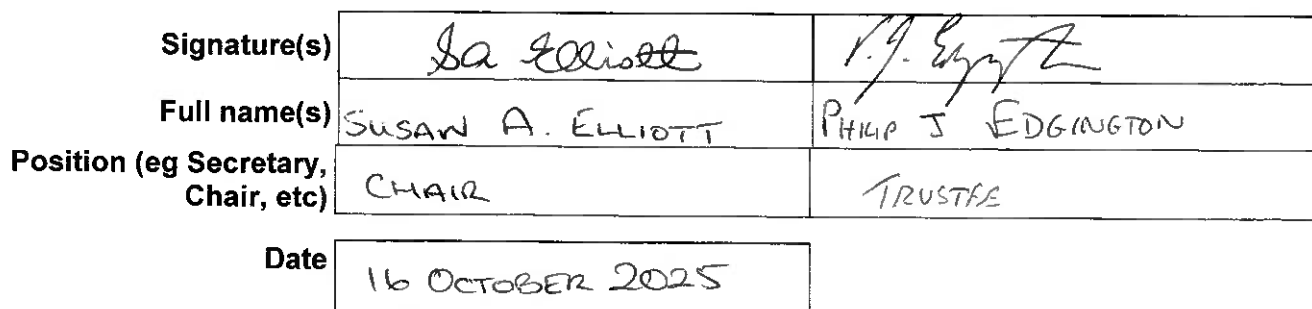 Signature(s) Sa Elliott P.J. Edgington
Full name(s) SUSAN A. ELLIOTT PHILIP J EDGINGTON
Position (eg Secretary,
Chair, etc) CHAIR TRUSTEE
Date 16 OCTOBER 2025